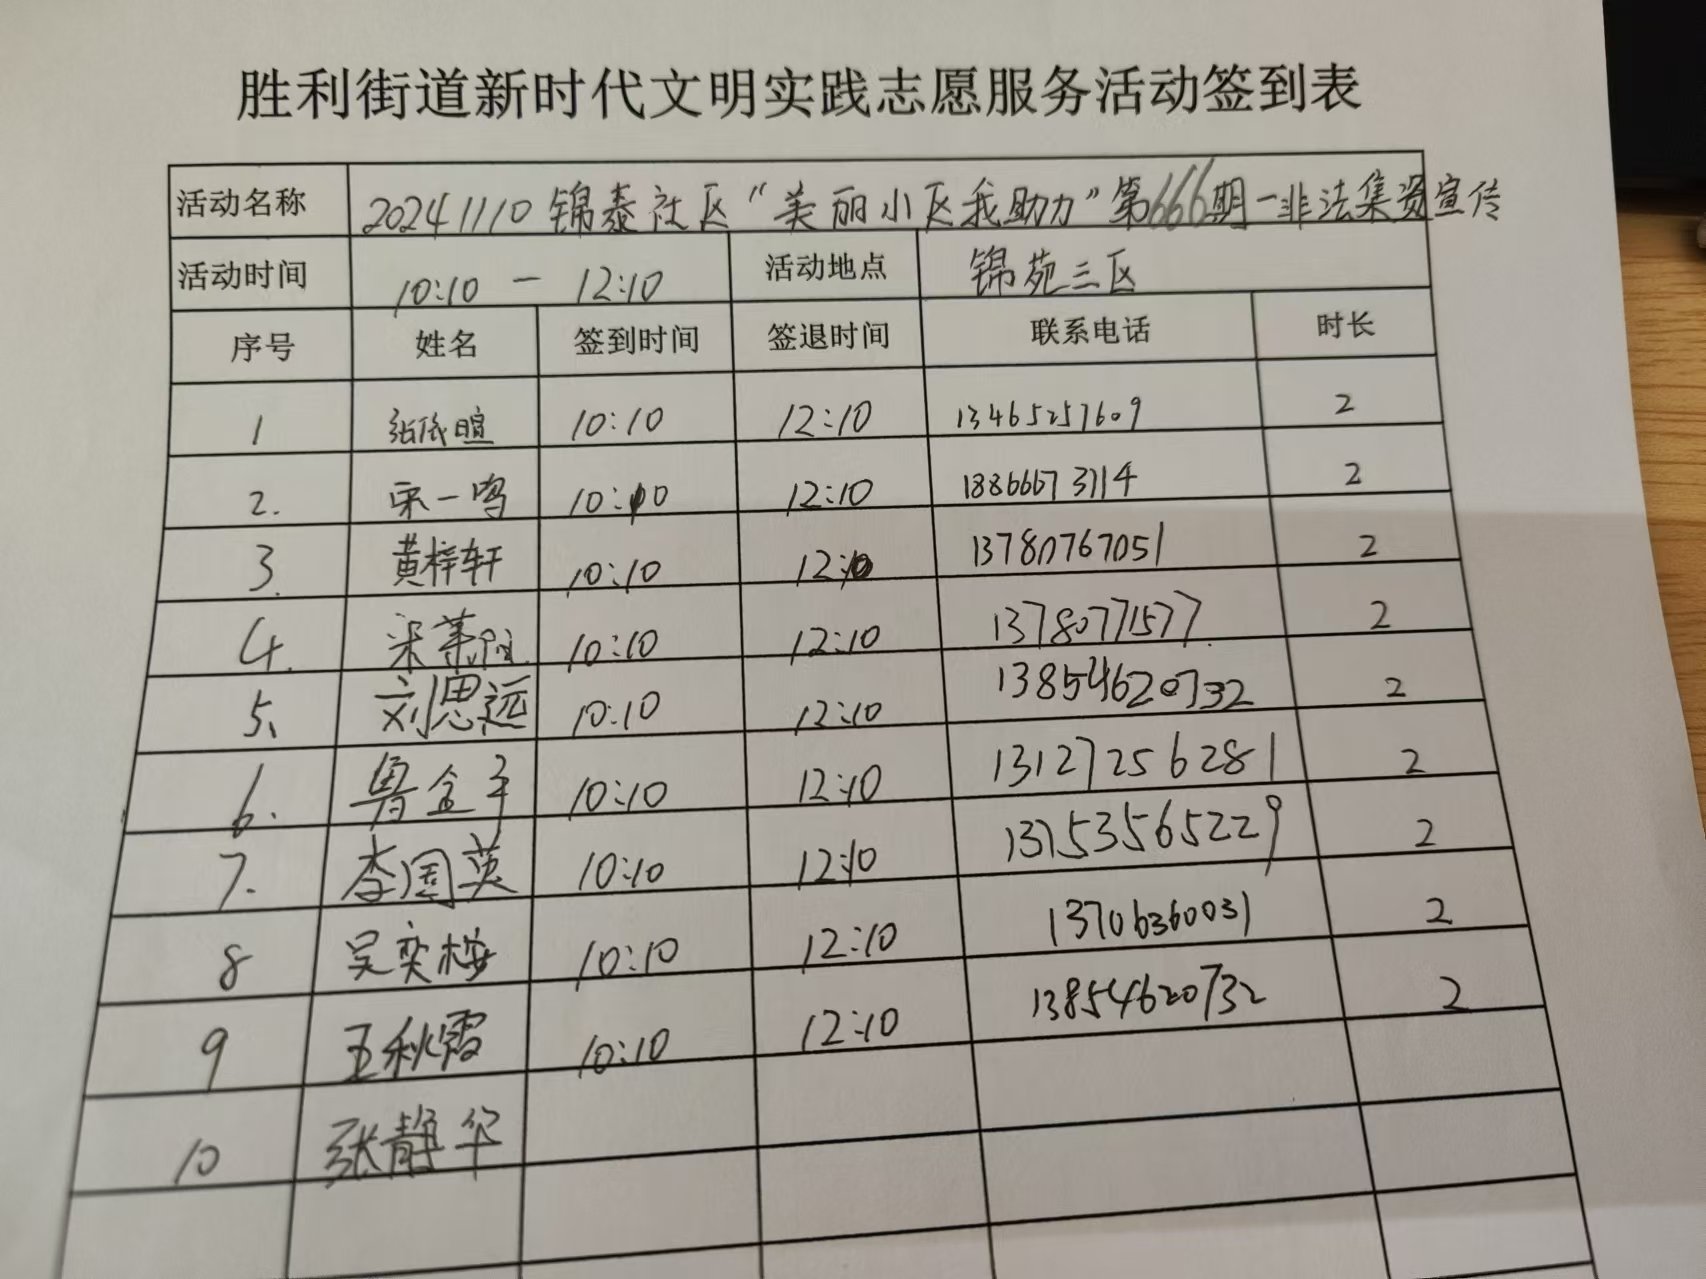 胜利街道新时代文明实践志愿服务活动签到表
活动名称 20241110 锦泰社区“美丽小区我助力”第666期-非法集资宣传
活动时间 10:10 — 12:10 活动地点 锦苑三区
序号 姓名 签到时间 签退时间 联系电话 时长
1 10:10 12:10 13465257609 2
2. 宋一鸣 10:10 12:10 18866673114 2
3. 黄梓轩 10:10 12:10 13780767051 2
4. 10:10 12:10 13780771577 2
5、 刘思远 10:10 12:10 13854620732 2
6. 鲁金平 10:10 12:10 13127256281 2
7. 李国英 10:10 12:10 13753565229 2
8 吴奕桉 10:10 12:10 13706360031 2
9 王秋霞 10:10 12:10 13854620732 2
10 张静华